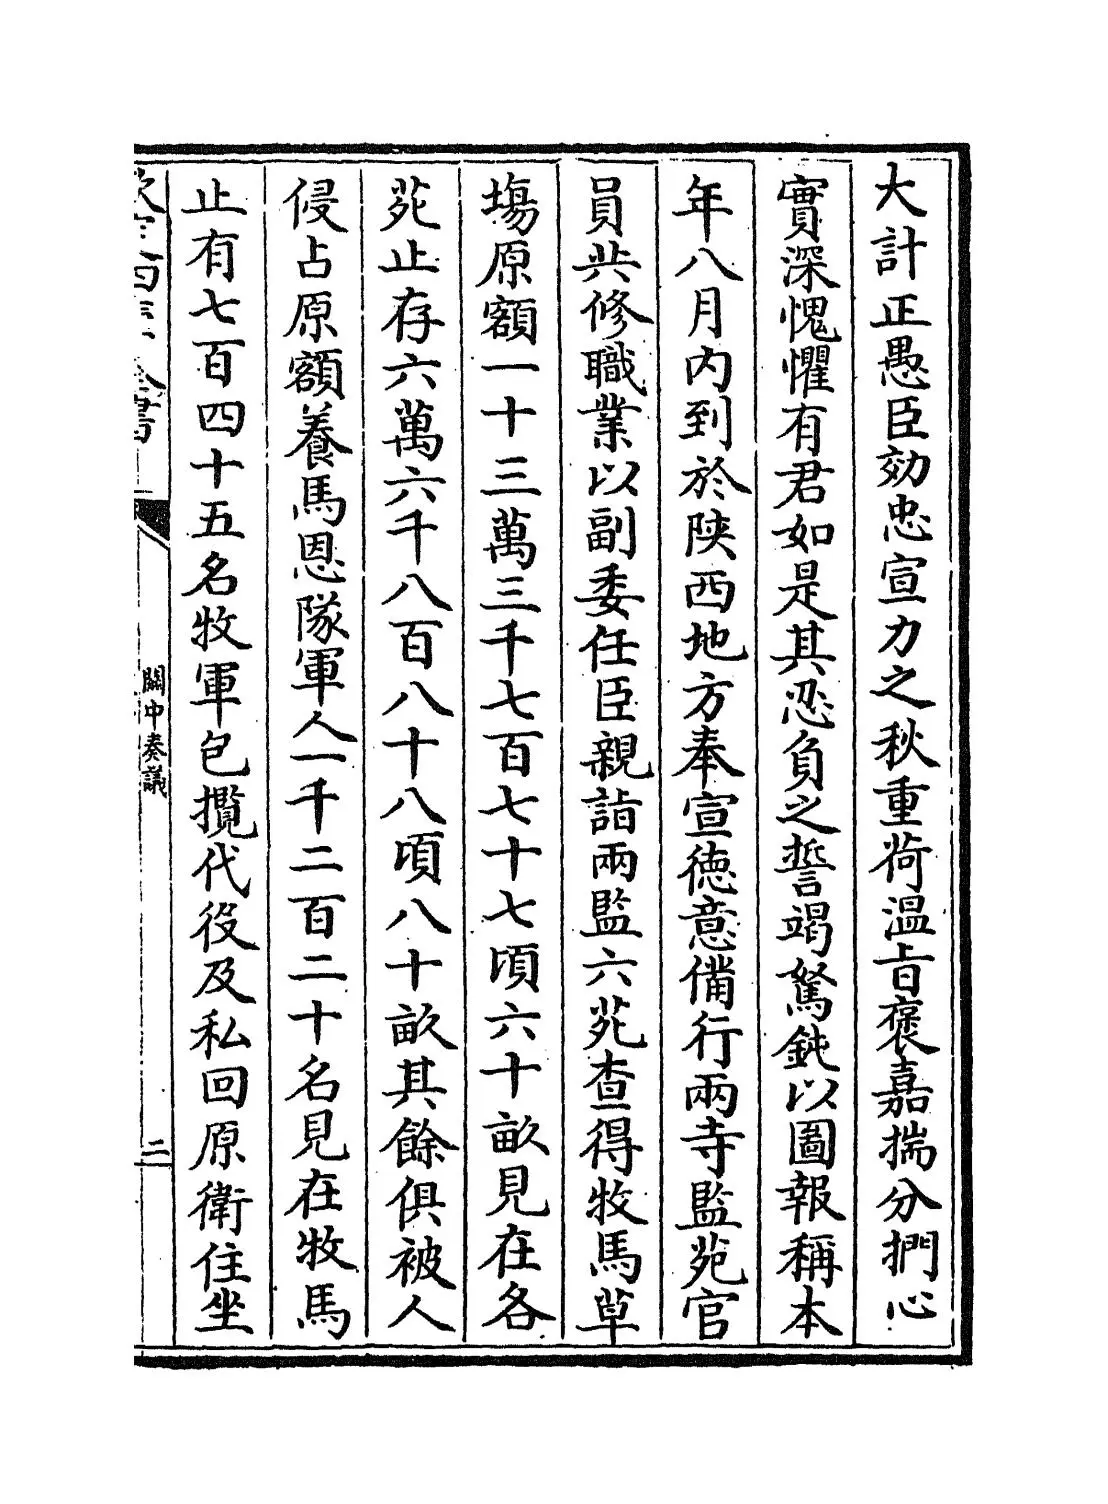 大計正愚臣効忠宣力之秋重荷温旨褒嘉揣分捫心
實深愧懼有君如是其忍負之誓竭駑鈍以圖報稱本
年八月内到於陜西地方奉宣徳意備行兩寺監苑官
員共修職業以副委任臣親詣兩監六苑查得牧馬草
塲原額一十三萬三千七百七十七頃六十畝見在各
苑止存六萬六千八百八十八頃八十畝其餘俱被人
侵占原額養馬恩隊軍人一千二百二十名見在牧馬
止有七百四十五名牧軍包攬代役及私回原衛住坐
欽定四庫全書
關中奏議
二